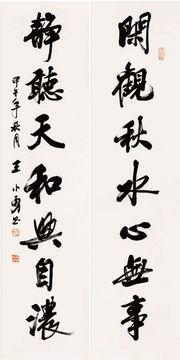 閑觀秋水心無事
靜聽天和興自濃
甲午年秋月 王小勇书